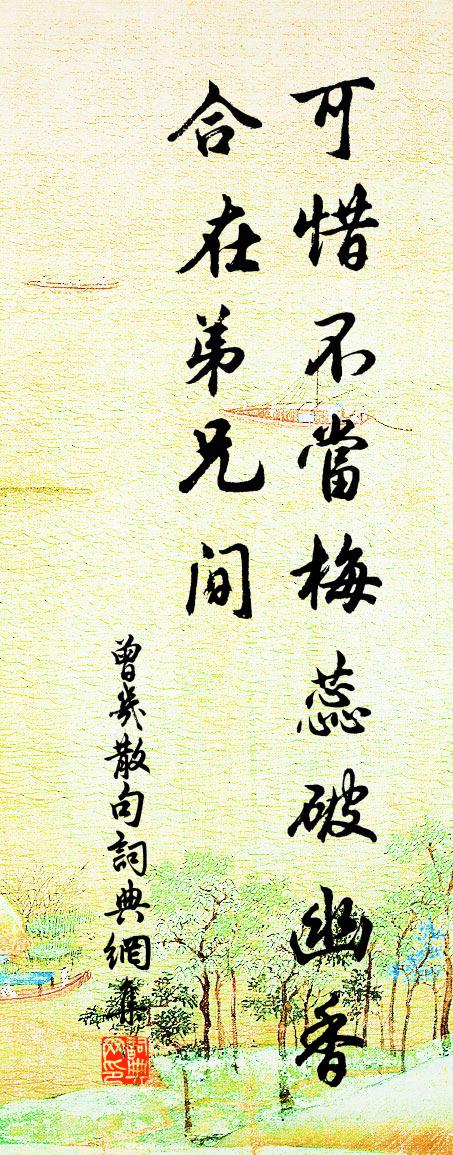 可惜不當梅蕊破幽香
合在弟兄間
曾幾散句詞典網集